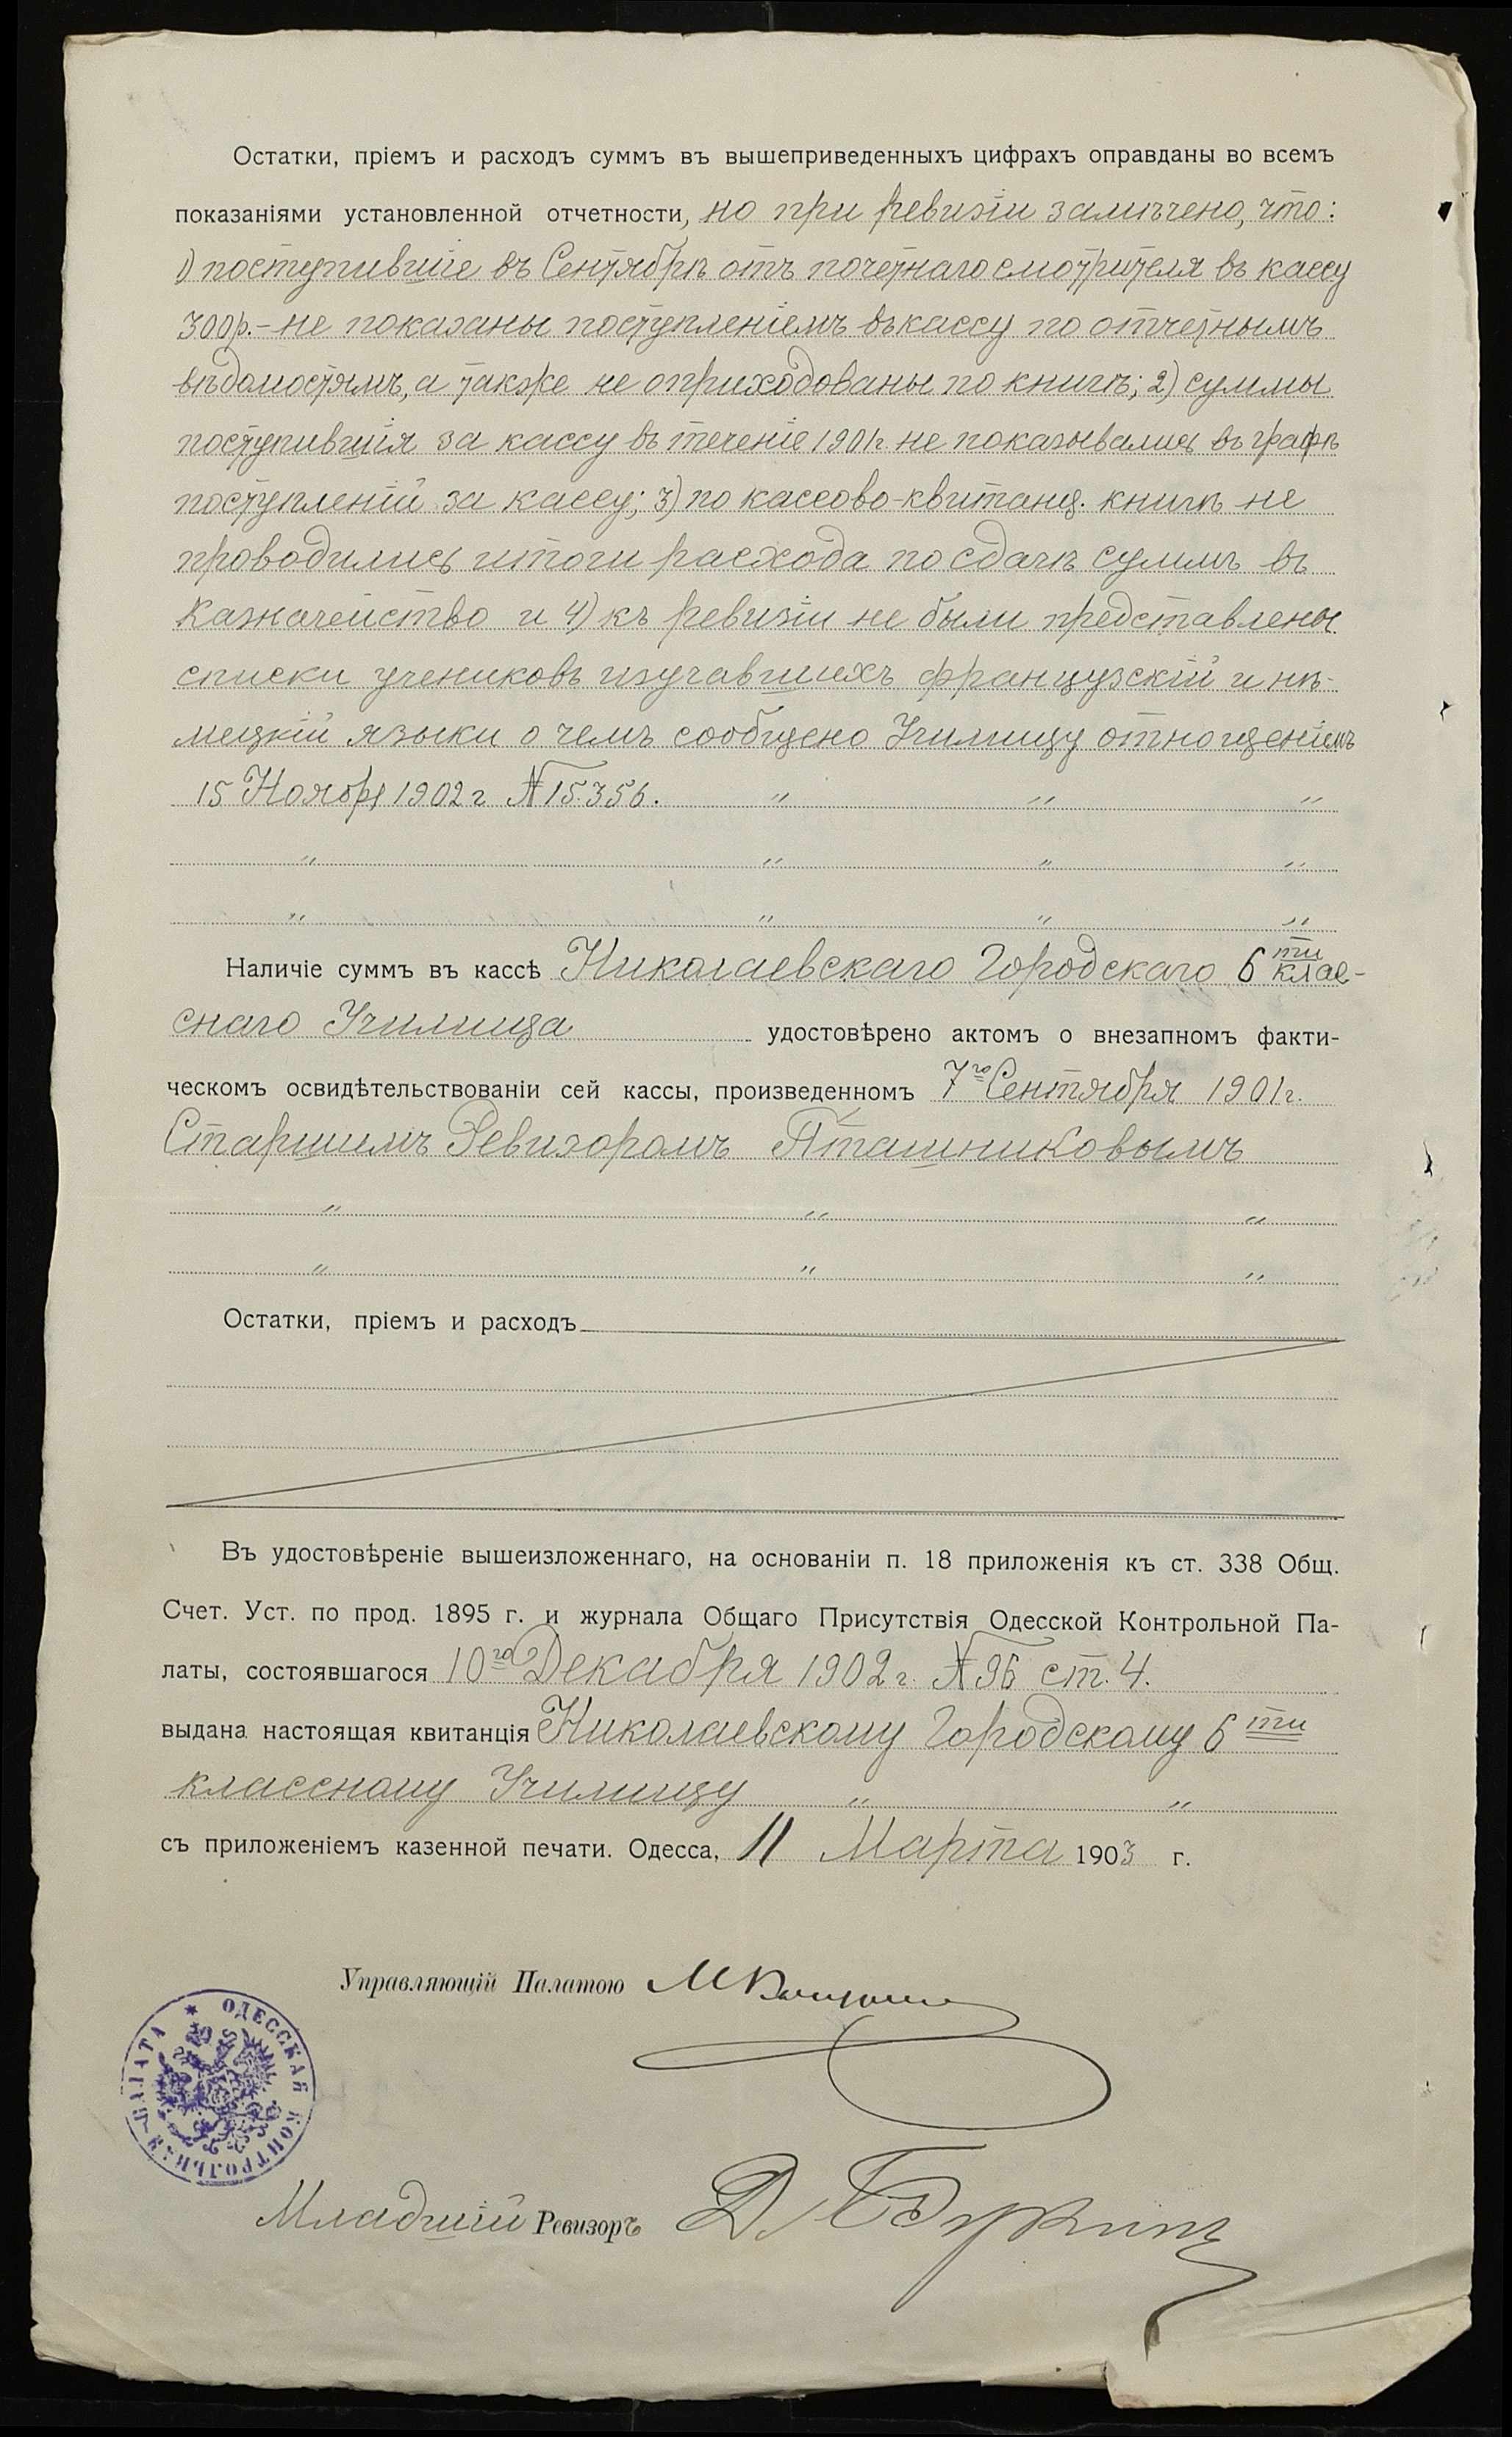 Остатки, пріемъ и расходъ суммъ въ вышеприведенныхъ цифрахъ оправданы во всемъ
показаніями установленной отчетности, но при ревизіи замѣчено, что:
1) поступившіе въ Сентябрѣ отъ почетнаго смотрителя въ кассу
300р.- не показаны поступленіемъ въ кассу по отчетнымъ
вѣдомостямъ, а также не оприходованы по книгѣ; 2) суммы
поступившія за кассу въ теченіе 1901г. не показывались въ графѣ
поступленій за кассу; 3) по кассово-квитанц. книгѣ не
проводились итоги расхода по сдачѣ суммъ въ
Казначейство и 4) къ ревизіи не были представлены
списки учениковъ изучавшихъ французскій и нѣ-
мецкій языки о чемъ сообщено Училищу отношеніемъ
15 Ноября 1902 г. № 15356. " " "
" " " "
" " " "
Наличіе суммъ въ кассѣ Николаевскаго Городскаго 6ти клас-
снаго Училища удостовѣрено актомъ о внезапномъ факти-
ческомъ освидѣтельствованіи сей кассы, произведенномъ 7го Сентября 1901г.
Старшимъ Ревизоромъ Пташниковымъ
" " "
" " "
Остатки, пріемъ и расходъ
Въ удостовѣреніе вышеизложеннаго, на основаніи п. 18 приложенія къ ст. 338 Общ.
Счет. Уст. по прод. 1895 г. и журнала Общаго Присутствія Одесской Контрольной Па-
латы, состоявшагося 10го Декабря 1902 г. № 96 ст. 4.
выдана настоящая квитанція Николаевскому Городскому 6ти
классному Училищу " "
съ приложеніемъ казенной печати. Одесса, 11 Марта 1903 г.
Управляющій Палатою М
ОДЕССКАЯ КОНТРОЛЬНАЯ ПАЛАТА
Младшій Ревизоръ Д.